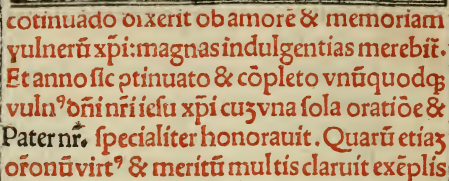 cōtinuādo dixerit ob amorē & memoriam
vulnerū xp̄i: magnas indulgentias merebit̄.
Et anno sic ꝓtinuato & cōpleto vnūquodqꝫ
vulnꝰ dn̄i nr̄i iesu xp̄i cuꝫ vna sola oratiōe &
Pater nr̄. specialiter honorauit. Quarū etiaꝫ
or̄onū virtꝰ & meritū multis claruit exēplis